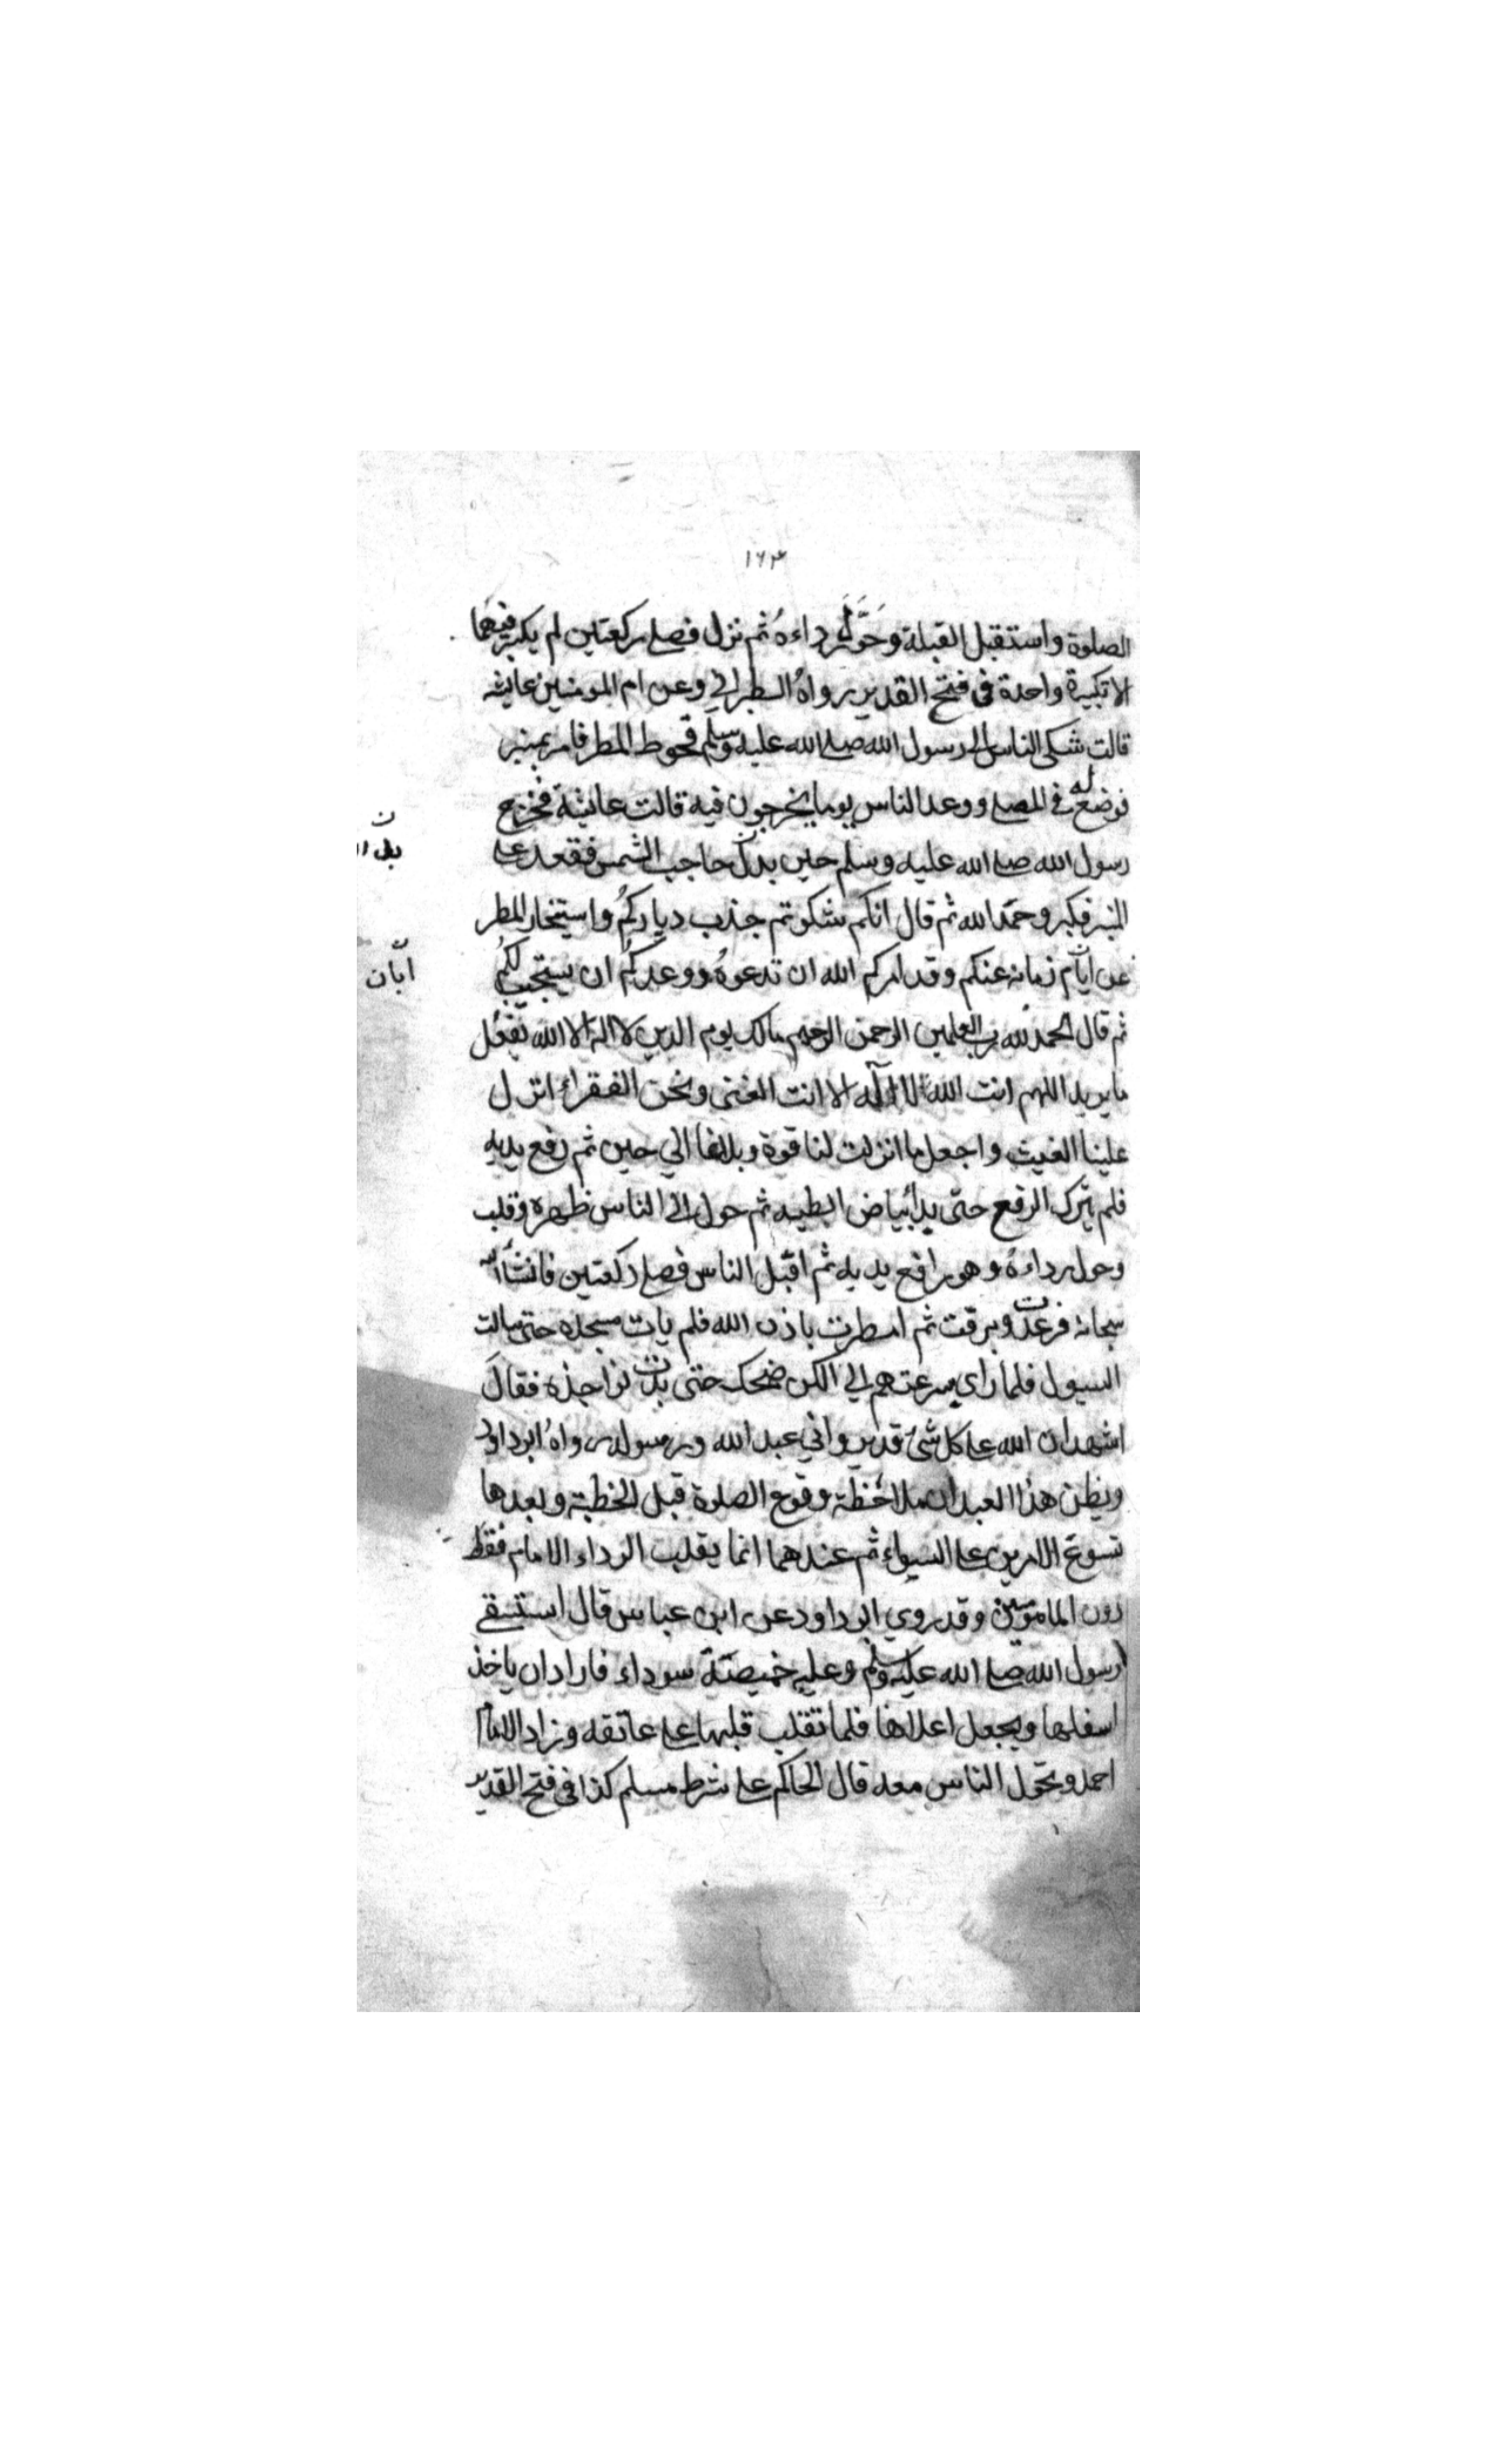 ١٦٣
الصلوة واستقبل القبلة وحَوَّلَ رداءهُ ثم نزل فصلے ركعتين لم يكبر فيهما
الا تكبيرة واحدة فى فتح القدير رواهُ الطبراني وعن ام المومنين عايشه
قالت شكى الناس الى رسول الله صلے الله عليه وسلم قحوط المطر فامر بمنبر
فوضع له في المصلے ووعد الناس يوما يخرجون فيه قالت عايشة فخرج
رسول الله صلے الله عليه وسلم حين بدا حاجب الشمس فقعد علے
المنبر فكبر وحمّد الله ثم قال انكم شكوتم جذب دياركُم واستيخار المطر
عن ايّام زمانه عنكم وقد امركم الله ان تدعوهُ ووعدكُم ان يستجيب لكُم
ثم قال الحمد لله رب العلمين الرحمن الرحيم مالك يوم الدين لا اله الا الله يفعُل
ما يريد اللهم انت الله لا اله الا انت الغنى ونحن الفقراء انزل
علينا الغيث واجعل ما انزلت لنا قوة وبلاغا الي حين ثم رفع يديه
فلم يترك الرفع حتى بدا بياض ابطيه ثم حول الى الناس ظهره وقلب
وحول رداءهُ وهو رافع يديه ثم اقبل الناس فصلے ركعتين فانشأ الله
سبحانه فرعدت وبرقت ثم امطرت باذن الله فلم يات مسجده حتى سالت
السيول فلما راي سرعتهم الي الكن ضحك حتى بدت نواجذه فقال
اشهد ان الله علے كل شئ قدير واني عبد الله ورسوله رواهُ ابو داود
ويظن هذا العبد ان ملاحظة وقوع الصلوة قبل الخطبة وبعدها
تسوغ الامرين علے السواء ثم عندهما انما يقلب الرداء الامام فقط
دون المامومين وقد روي ابو داود عن ابن عباس قال استسقے
رسول الله صلے الله عليه وسلم وعليه خميصة سوداء فاراد ان ياخذ
اسفلها ويجعل اعلاها فلما تقلب قلبها علے عاتقه وزاد الامام
احمد وتحول الناس معه قال الحاكم علے شرط مسلم كذا فى فتح القدير
ن
ن
ابّان